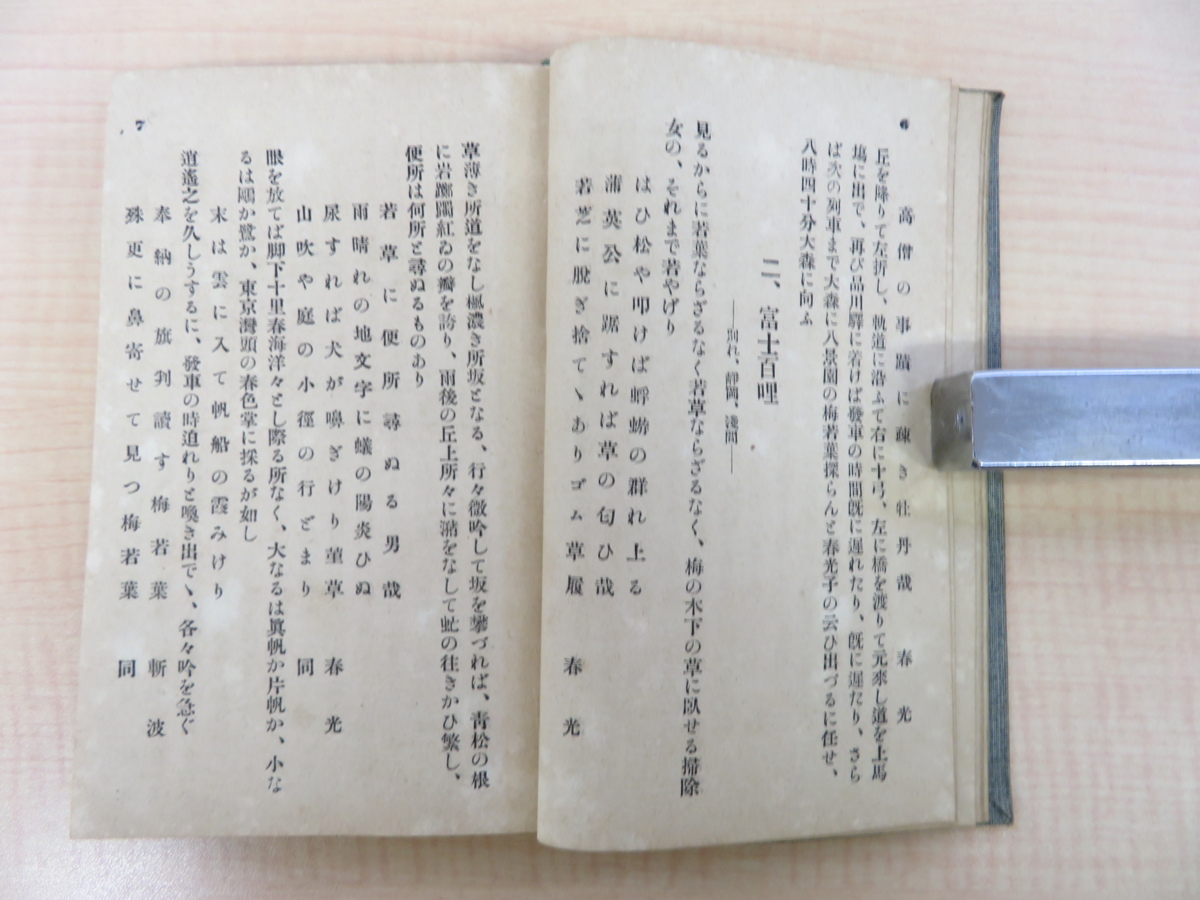 6
高僧の事蹟に疎き牡丹哉 春光
丘を降りて左折し、軌道に沿ふて右に十弓、左に橋を渡りて元來し道を上馬
塲に出で、再び品川驛に着けば發車の時間既に遲れたり、既に遲たり、さら
ば次の列車まで大森に八景園の梅若葉探らんと春光子の云ひ出づるに任せ、
八時四十分大森に向ふ
二、富士百哩
――別れ、靜岡、淺間――
見るからに若葉ならざるなく若草ならざるなく、梅の木下の草に臥せる掃除
女の、それまで若やげり
はひ松や叩けば蜉蝣の群れ上る
蒲英公に踞すれば草の匂ひ哉
若芝に脱ぎ捨てゝありゴム草履 春光
7
草薄き所道をなし楓濃き所坂となる、行々微吟して坂を攀づれば、靑松の根
に岩躑躅紅ゐの瓣を誇り、雨後の丘上所々に潴をなして虻の往きかひ繁し、
便所は何所と尋ぬるものあり
若草に便所尋ぬる男哉
雨晴れの地文字に蟻の陽炎ひぬ
尿すれば犬が嗅ぎけり菫草 春光
山吹や庭の小徑の行どまり 同
眼を放てば脚下十里春海洋々とし際る所なく、大なるは眞帆か片帆か、小な
るは鷗か鷺か、東京灣頭の春色掌に採るが如し
末は雲に入て帆船の霞みけり
逍遙之を久しうするに、發車の時迫れりと喚き出でゝ、各々吟を急ぐ
奉納の旗判讀す梅若葉 斬波
殊更に鼻寄せて見つ梅若葉 同